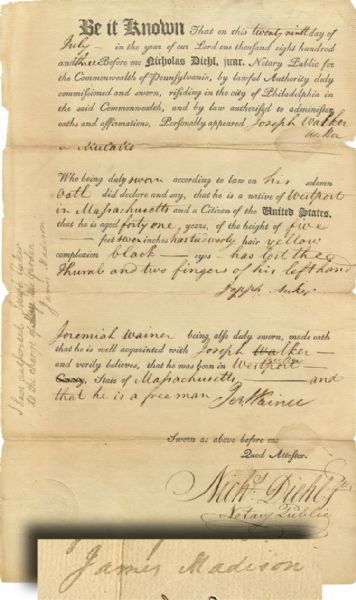 Be it Known That on this twenty ninth day of
July — in the year of our Lord one thousand eight hundred
and three Before me Nicholas Diehl, junr. Notary Public for
the Commonwealth of Pennsylvania, by lawful Authority duty
commissioned and sworn, residing in the city of Philadelphia in
the said Commonwealth, and by law authorised to administer
oaths and affirmations, Personally appeared Joseph Walker
Auker
a Mulatto
Who being duty sworn according to law on his solemn
oath did declare and say, that he is a native of Westport
in Massachusetts and a Citizen of the United States,
that he is aged forty one, years, of the height of five
— feet seven inches has hair
complexion yellow black — eyes — has lost the
thumb and two fingers of his left hand
Joseph Auker
Jeremiah Wainer being also duty sworn, made oath
that he is well acquainted with Joseph Walker —
Auker
and verily believes, that he was born in Westport —
County, State of Massachusetts — and
that he is a free man Jer Wainer
Sworn as above before me
Quod Attestor.
Nichs. Diehl Jr
Notary Public
Joseph Auker
to the charge
James Madison
James Madison